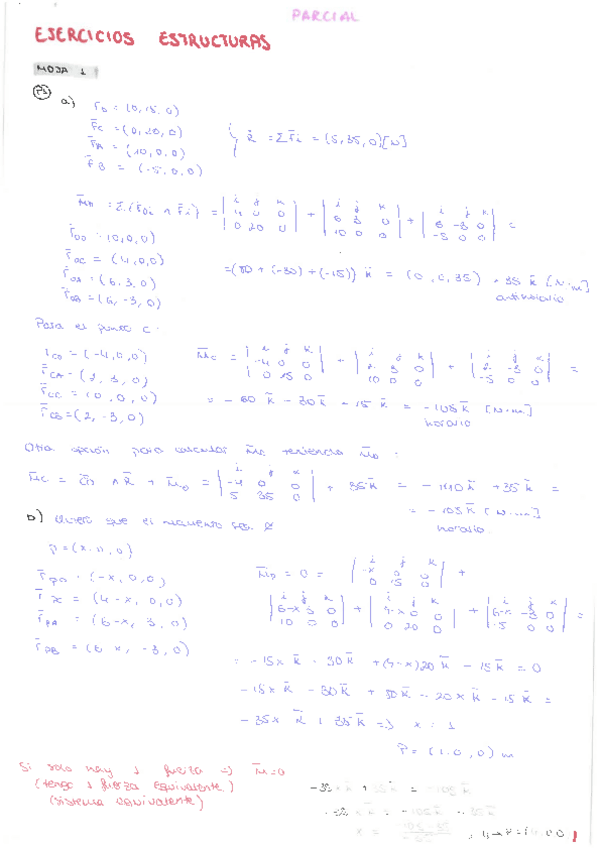 PARCIAL
EJERCICIOS ESTRUCTURAS
HOJA 1
P3
a) F̄o = (0,15,0)
F̄c = (0,20,0)
F̄A = (10,0,0)
F̄B = (-5,0,0)
R̄ = ΣF̄i = (5,35,0)[N]
M̄o = Σ(r̄oi ∧ F̄i) = |i j k; 4 0 0; 0 20 0| + |i j k; 6 3 0; 10 0 0| + |i j k; 6 -3 0; -5 0 0| =
r̄oo = (0,0,0)
r̄oc = (4,0,0)
r̄oA = (6,3,0)
r̄oB = (6,-3,0)
=(80 + (-30) + (-15)) k̄ = (0,0,35) = 35 k̄ [N·m]
antihorario
Para el punto C:
r̄co = (-4,0,0)
r̄cA = (2,3,0)
r̄cc = (0,0,0)
r̄cB = (2,-3,0)
M̄c = |i j k; -4 0 0; 0 15 0| + |i j k; 2 3 0; 10 0 0| + |i j k; 2 -3 0; -5 0 0| =
= -60 k̄ - 30 k̄ - 15 k̄ = -105 k̄ [N·m]
horario
Otra opción para calcular M̄c teniendo M̄o:
M̄c = c̄o ∧ R̄ + M̄o = |i j k; -4 0 0; 5 35 0| + 35 k̄ = -140 k̄ + 35 k̄ =
= -105 k̄ [N·m]
horario
b) Quiero que el momento sea 0
P=(x,0,0)
r̄po = (-x,0,0)
r̄pc = (4-x, 0,0)
r̄pA = (6-x, 3,0)
r̄pB = (6-x, -3,0)
M̄p = 0 = |i j k; -x 0 0; 0 15 0| +
|i j k; 6-x 3 0; 10 0 0| + |i j k; 4-x 0 0; 0 20 0| + |i j k; 6-x -3 0; -5 0 0| =
= -15x k̄ - 30 k̄ + (4-x)20 k̄ - 15 k̄ = 0
-15x k̄ - 30 k̄ + 80 k̄ - 20x k̄ - 15 k̄ =
-35x k̄ + 35 k̄ => x = 1
P = (1,0,0) m
Si solo hay 1 fuerza => M̄=0
(tengo 1 fuerza equivalente)
(sistema equivalente)